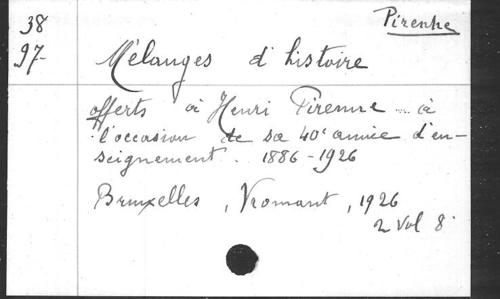 38
97-
Pirenne
Mélanges d'histoire
offerts à Henri Pirenne à
l'occasion de sa 40e année d'en-
seignement. 1886-1926
Bruxelles, Vromant, 1926
2 vol 8°